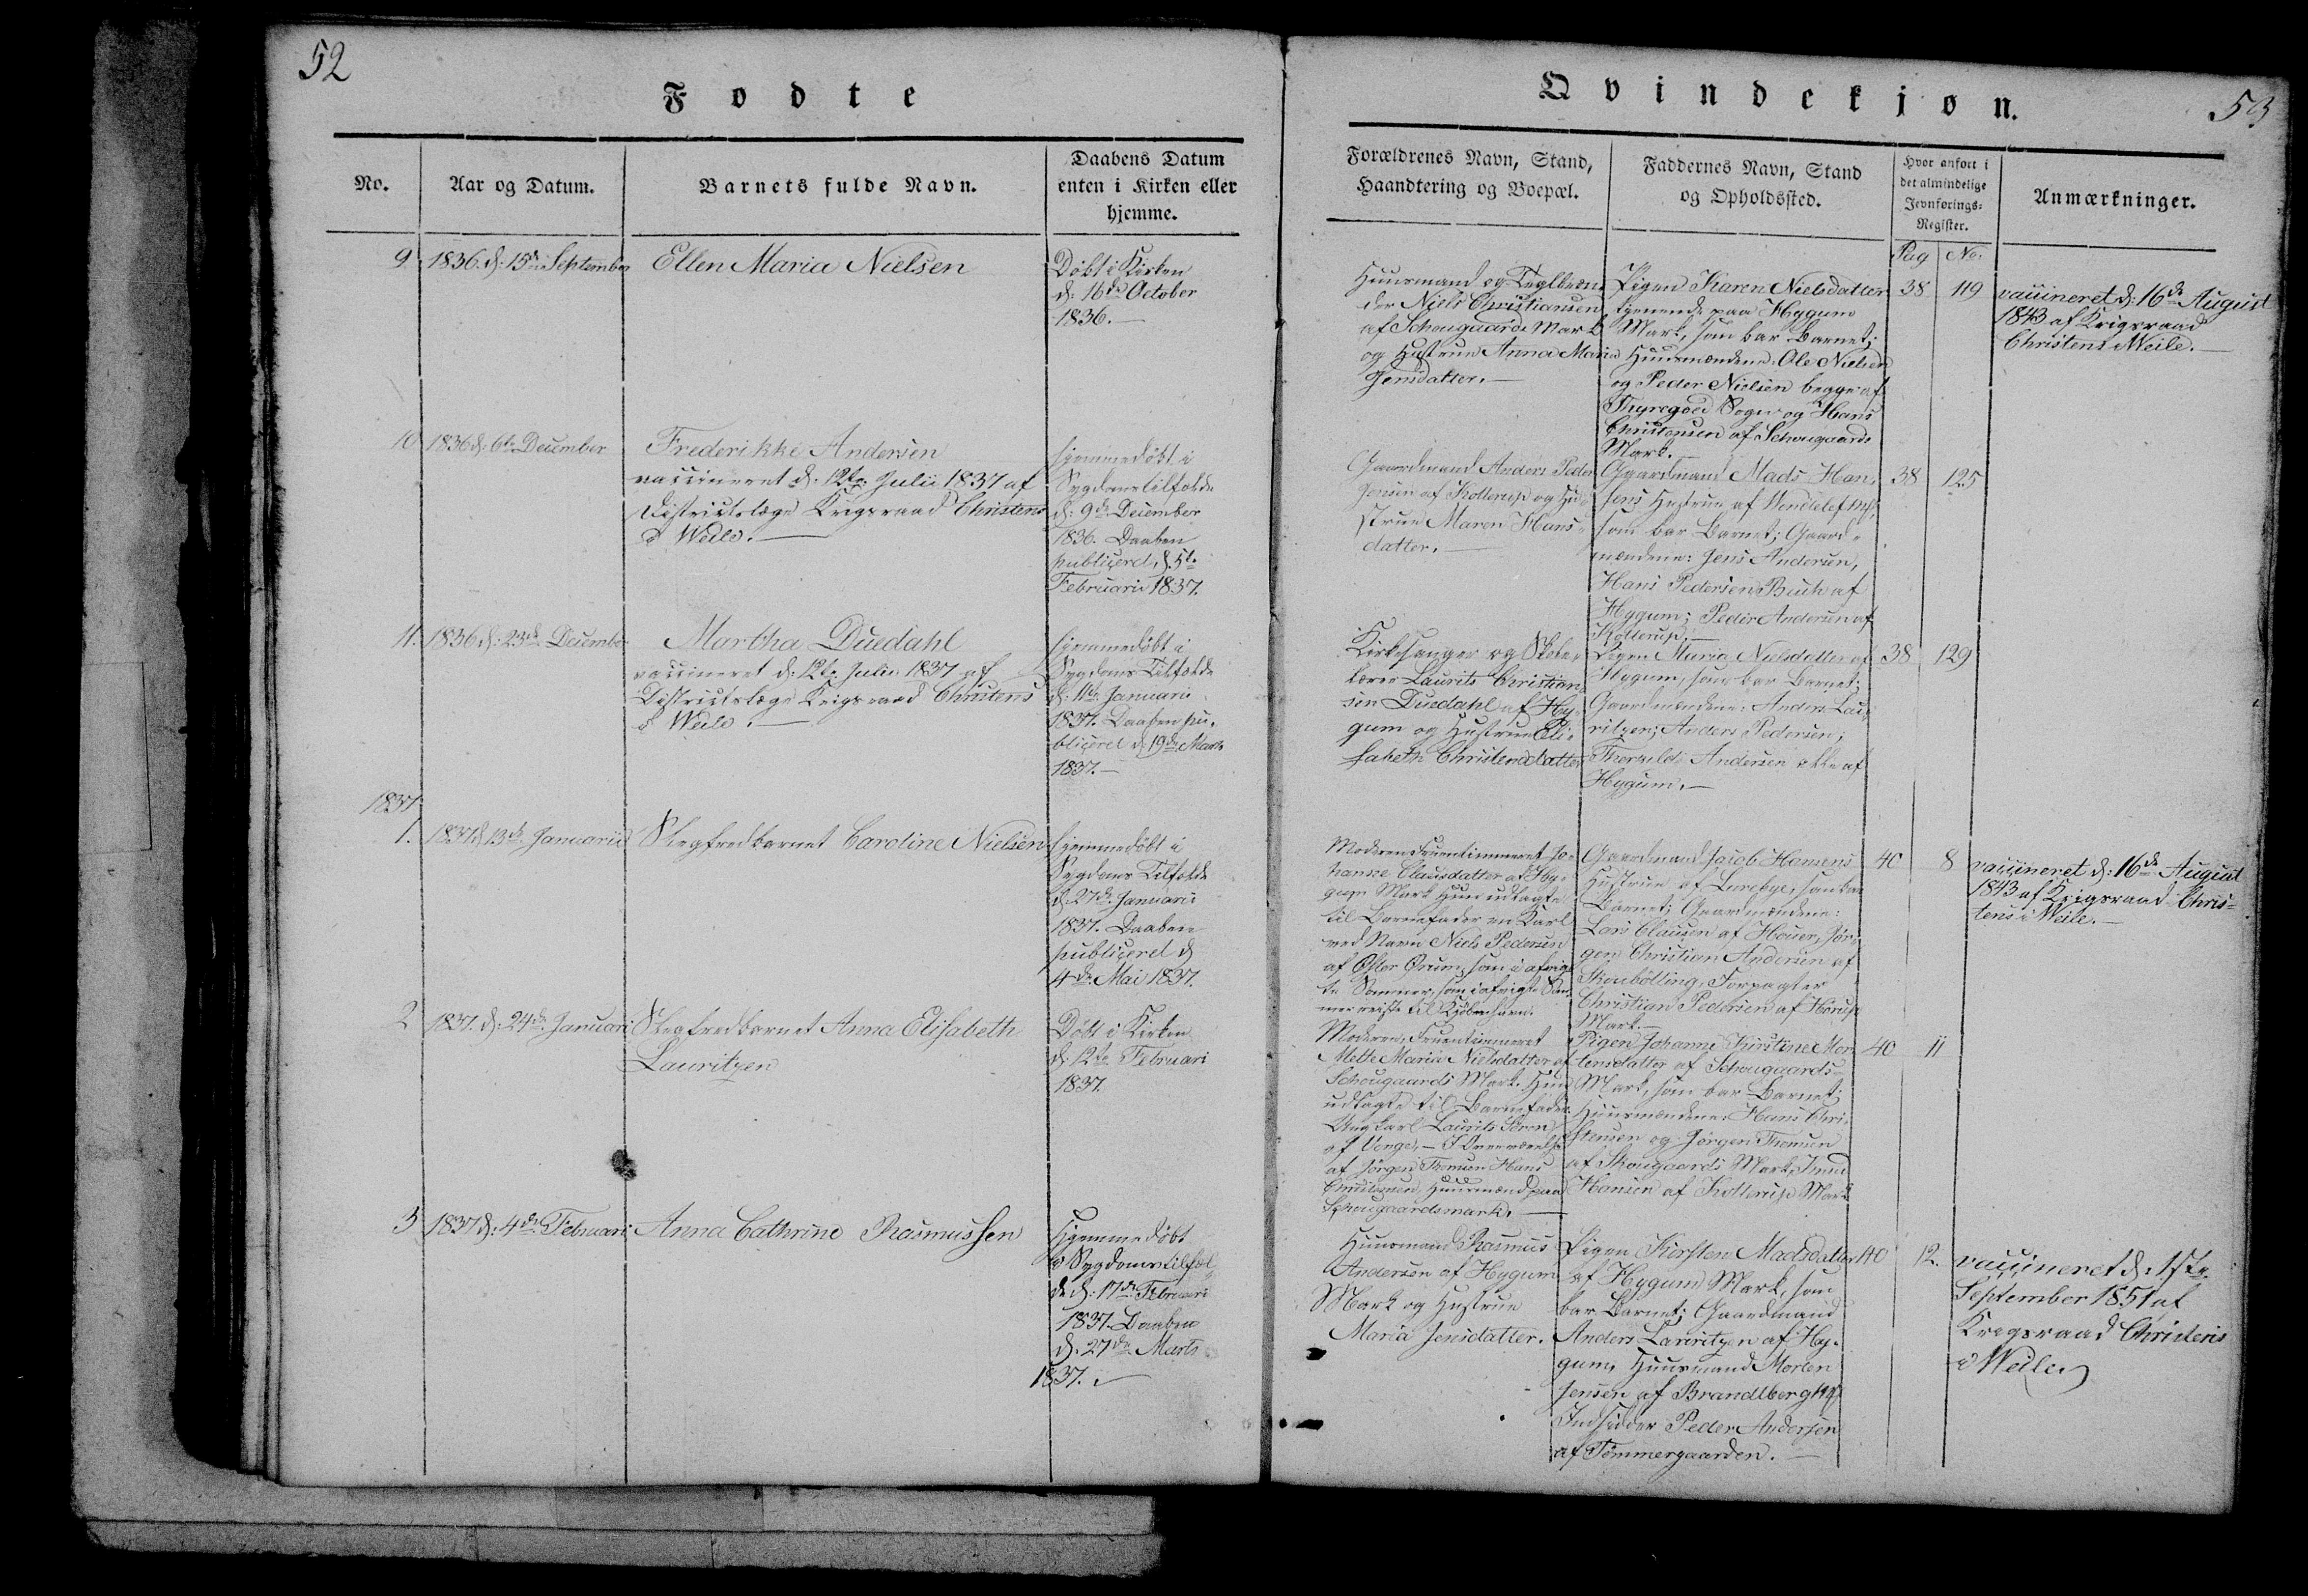 52
Fødte
No.
Aar og Datum.
Barnets fulde Navn.
Daabens Datum
enten i Kirken eller
hjemme.
9
1836. d: 15de September
Ellen Maria Nielsen
Döbt i Kirken
d: 16de October
1836. —
10
1836 d: 6te December
Frederikke Andersen
vaccineret d: 12te Julii 1837 af
Districtslæge Krigsraad Christens
i Weile. —
hjemmedöbt i
Sygdomstilfælde
d: 9de December
1836. Daaben
publiceret d. 5te
Februarii 1837.
11.
1836 d: 23de December
Martha Duedahl
vaccineret d: 12te Julii 1837 af
Districtslæge Krigsraad Christens
i Weile. —
hjemmedöbt i
Sygdoms Tilfælde
d: 11te Januarii
1837. Daaben pu-
bliceret d: 19de Marts
1837. —
1837
1.
1837 d 13de Januarii
Slegfredbarnet Caroline Nielsen
hjemmedöbt i
Sygdoms Tilfælde
d. 27de Januarii
1837. Daaben
publiceret d
4de Mai 1837.
2
1837. d: 24de Januari
Slegfredbarnet Anna Elisabeth
Lauritzen
Döbt i Kirken
d: 12te Februari
1837.
3
1837 d: 4de Februari
Anna Cathrine Rasmussen
Hjemmedöbt
i Sygdomstilfæl-
de d: 17de Februari
1837. Daaben
d. 27de Marts
1837.
Qvindekjøn.
53
Forældrenes Navn, Stand,
Haandtering og Boepæl.
Faddernes Navn, Stand
og Opholdssted.
Hvor anført i
det almindelige
Jevnførings-
Register.
Anmærkninger.
Pag
No.
Huusmand og Teglbræn-
der Niels Christiansen
af Schougaards Mark
og Hustrue Anna Maria
Jensdatter. —
Pigen Karen Nielsdatter
tjenende paa Hygum
Mark, som bar Barnet;
Huusmændene: Ole Nielsen
og Peder Nielsen begge af
Thyregoed Sogn og Hans
Christensen af Schougaards
Mark.
38
119
vaccineret d: 16de August
1843 af Krigsraad
Christens i Weile. —
Gaardmand Anders Peder
Jensen af Kollerup og Hu-
strue Maren Hans-
datter. —
Gaardmand Mads Han-
sens Hustrue af
som bar Barnet; Gaard-
mændene: Jens Andersen,
Hans Pedersen Buch af
Hygum; Peder Andersen af
Kollerup. —
38
125
Kirkesanger og Skole-
lærer Laurits Christian-
sen Duedahl af Hy-
gum og Hustrue Eli-
sabeth Christensdatter
Pigen Maria Nielsdatter af
Hygum, som bar Barnet;
Gaardmændene: Anders Lau-
ritzen; Anders Pedersen;
Andersen alle af
Hygum. —
38
129
Moderen Fruentimmeret Jo-
hanne Clausdatter af Hy-
gum Mark Hun udlagte
til Barnefader en Karl
ved Navn Niels Pedersen
af Öster Örum, som i afvigt
te Sommer, som i afvigte Som-
mer reiste til Kjöbenhavn.
Gaardmand Jacob Hansens
Hustrue af som bar
Barnet; Gaardmændene:
Lars Clausen af Höuer, Jör-
gen Christian Andersen af
Skovbölling, Forpagter
Christian Pedersen af Hörup
Mark. —
40
8
vaccineret d: 16de August
1843 af Krigsraad Chris-
tens i Weile. —
Moderen, Fruentimmeret
Mette Maria Nielsdatter af
Schougaards Mark. Hun
udlagte til Barnefader
Ungkarl Laurits Sören
af Venge. — I Overværelse
af Jörgen Thomsen Hans
Christensen Huusmænd paa
Schougaardsmark. —
Pigen Johanne Kirstine Mor-
tensdatter af Schougaards-
Mark, som bar Barnet;
Huusmændene: Hans Chri-
stensen og Jörgen Thomsen
af Skougaards Mark,
Hansen af Kollerup Mark
40
11
Huusmand Rasmus
Andersen af Hygum
Mark og Hustrue
Maria Jensdatter.
Pigen Kirsten Madsdatter
af Hygum Mark, som
bar Barnet; Gaardmand
Anders Lauritzen af Hy-
gum, Huusmand Morten
Jensen af Brandlberg
Indsidder Peder Andersen
af Tömmergaarden. —
40
12.
vaccineret d: 1ste
September 1851 af
Krigsraad Christens
i Weile